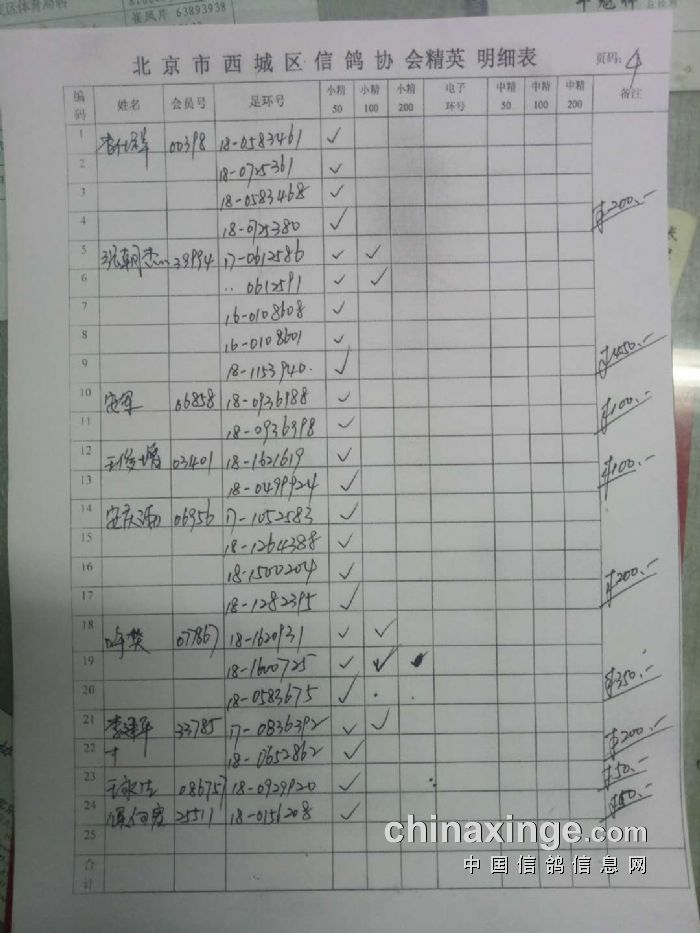 崔凤芹 63893938
北京市西城区信鸽协会精英 明细表
页码: 4
编码 姓名 会员号 足环号 小精50 小精100 小精200 电子环号 中精50 中精100 中精200 备注
1 00398 18-0583461 ✓
2 18-0725361 ✓
3 18-0583468 ✓
4 18-0725380 ✓ ¥200.-
5 39994 17-0612586 ✓ ✓
6 .. 0612591 ✓ ✓
7 16-0108608 ✓
8 16-0108601 ✓
9 18-1153940. ✓ ¥450.-
10 安军 06858 18-0936988 ✓
11 18-0936998 ✓ ¥100.-
12 03401 18-1621619 ✓
13 18-0499924 ✓ ¥100.-
14 06956 17-1052583 ✓
15 18-1264388 ✓
16 18-1500204 ✓
17 18-1282395 ✓ ¥200.-
18 07786 18-1620931 ✓ ✓
19 18-1600725 ✓ ✓
20 18-0583675 ✓ ¥350.-
21 李建华 33785 17-0836392 ✓ ✓
22 18-0652862 ✓ ¥200.-
23 086757 18-0929920 ✓ ¥50.-
24 25511 18-0156208 ✓ ¥50.-
25
合计
chinaxinge.com
中国信鸽信息网